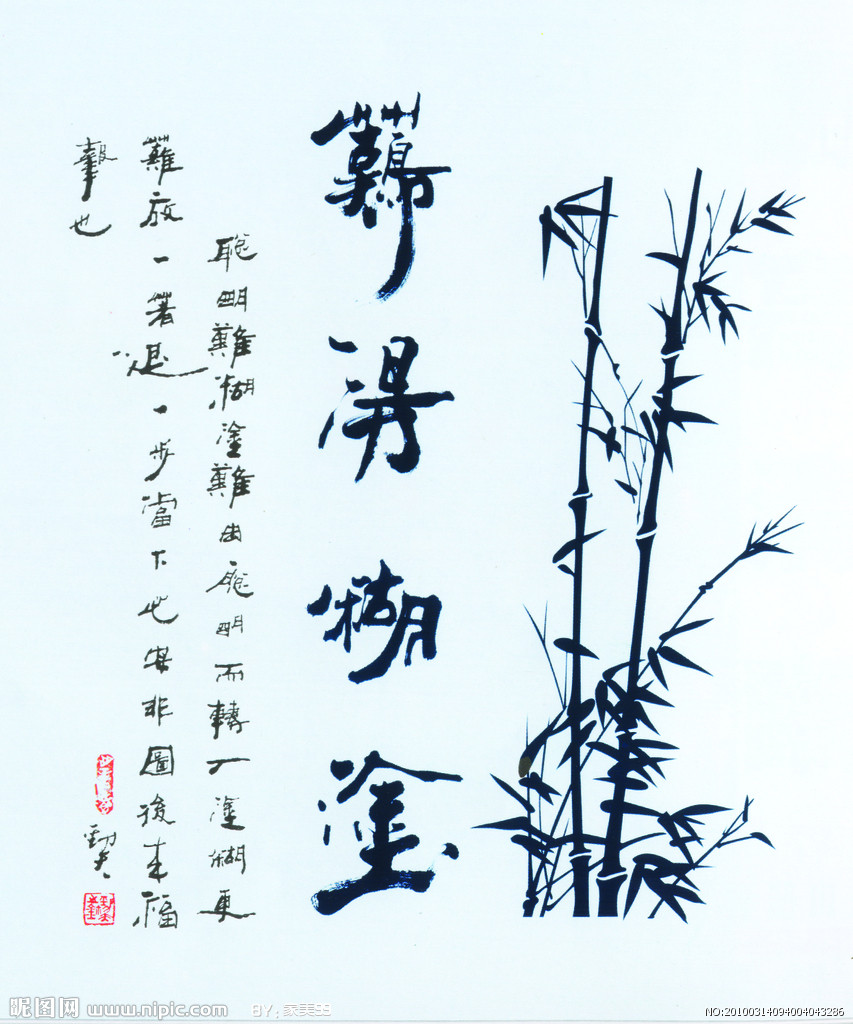 難得糊塗
聰明難糊塗難由聰明而轉入塗糊更
難放一著退一步當下心安非圖後來福
報也
昵图网 www.nipic.com BY:家美99
NO:20100314094004043286